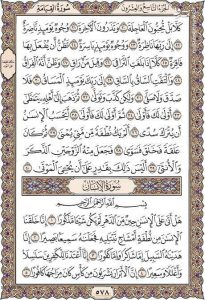 الجزء التاسع والعشرون
سورة القيامة
كَلَّا بَلْ تُحِبُّونَ ٱلْعَاجِلَةَ ٢٠ وَتَذَرُونَ ٱلْأَخِرَةَ ٢١ وُجُوهٌ يَوْمَئِذٍ نَّاضِرَةٌ
٢٢ إِلَىٰ رَبِّهَا نَاظِرَةٌ ٢٣ وَوُجُوهٌ يَوْمَئِذٍ بَاسِرَةٌ ٢٤ تَظُنُّ أَن يُفْعَلَ بِهَا
فَاقِرَةٌ ٢٥ كَلَّا إِذَا بَلَغَتِ ٱلتَّرَاقِيَ ٢٦ وَقِيلَ مَنْ رَاقٍ ٢٧ وَظَنَّ أَنَّهُ ٱلْفِرَاقُ
٢٨ وَٱلْتَفَّتِ ٱلسَّاقُ بِٱلسَّاقِ ٢٩ إِلَىٰ رَبِّكَ يَوْمَئِذٍ ٱلْمَسَاقُ ٣٠ فَلَا
صَدَّقَ وَلَا صَلَّىٰ ٣١ وَلَٰكِن كَذَّبَ وَتَوَلَّىٰ ٣٢ ثُمَّ ذَهَبَ إِلَىٰ أَهْلِهِ يَتَمَطَّىٰ
٣٣ أَوْلَىٰ لَكَ فَأَوْلَىٰ ٣٤ ثُمَّ أَوْلَىٰ لَكَ فَأَوْلَىٰ ٣٥ أَيَحْسَبُ ٱلْإِنسَٰنُ
أَن يُتْرَكَ سُدًى ٣٦ أَلَمْ يَكُ نُطْفَةً مِّن مَّنِيٍّ يُمْنَىٰ ٣٧ ثُمَّ كَانَ
عَلَقَةً فَخَلَقَ فَسَوَّىٰ ٣٨ فَجَعَلَ مِنْهُ ٱلزَّوْجَيْنِ ٱلذَّكَرَ
وَٱلْأُنثَىٰ ٣٩ أَلَيْسَ ذَٰلِكَ بِقَٰدِرٍ عَلَىٰ أَن يُحْـِۧيَ ٱلْمَوْتَىٰ ٤٠
سورة الإنسان
بِسْمِ ٱللَّهِ ٱلرَّحْمَٰنِ ٱلرَّحِيمِ
هَلْ أَتَىٰ عَلَى ٱلْإِنسَٰنِ حِينٌ مِّنَ ٱلدَّهْرِ لَمْ يَكُن شَيْـًٔا مَّذْكُورًا ١ إِنَّا خَلَقْنَا
ٱلْإِنسَٰنَ مِن نُّطْفَةٍ أَمْشَاجٍ نَّبْتَلِيهِ فَجَعَلْنَٰهُ سَمِيعًۢا بَصِيرًا ٢ إِنَّا
هَدَيْنَٰهُ ٱلسَّبِيلَ إِمَّا شَاكِرًا وَإِمَّا كَفُورًا ٣ إِنَّا أَعْتَدْنَا لِلْكَٰفِرِينَ سَلَٰسِلَا۟
وَأَغْلَٰلًا وَسَعِيرًا ٤ إِنَّ ٱلْأَبْرَارَ يَشْرَبُونَ مِن كَأْسٍ كَانَ مِزَاجُهَا كَافُورًا ٥
٥٧٨